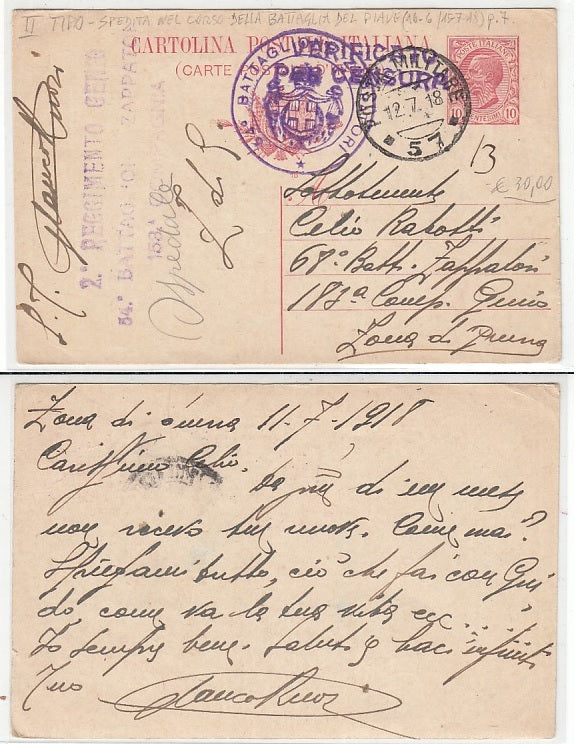 II TIPO - SPEDITA NEL CORSO DELLA BATTAGLIA DEL PIAVE (16-6/15-7-18) p.7.
CARTOLINA POSTALE ITALIANA
(CARTE POSTALE D'ITALIE)
POSTE ITALIANE
10 CENTESIMI 10
VERIFICATO
PER CENSURA
54° BATTAGL ZAPPATORI
POSTA MILITARE
12.7.18
57
2° REGGIMENTO GENIO
54° BATTAG ZAPPATORI
153A COMPAGNIA
Ospedale
Z d G
13
€ 30,00
Sottotenente
Celio Rabotti
68° Batt. Zappatori
183ª Comp. Genio
Zona di guerra
Zona di guerra 11-7-1918
Carissimo Celio.
Da più di un mese
non ricevo tue nuove. Come mai?
Spiegami tutto, ciò che fai con Gui
do, come va la tua vita ecc...
Io sempre bene. Saluti e baci infiniti
Tuo